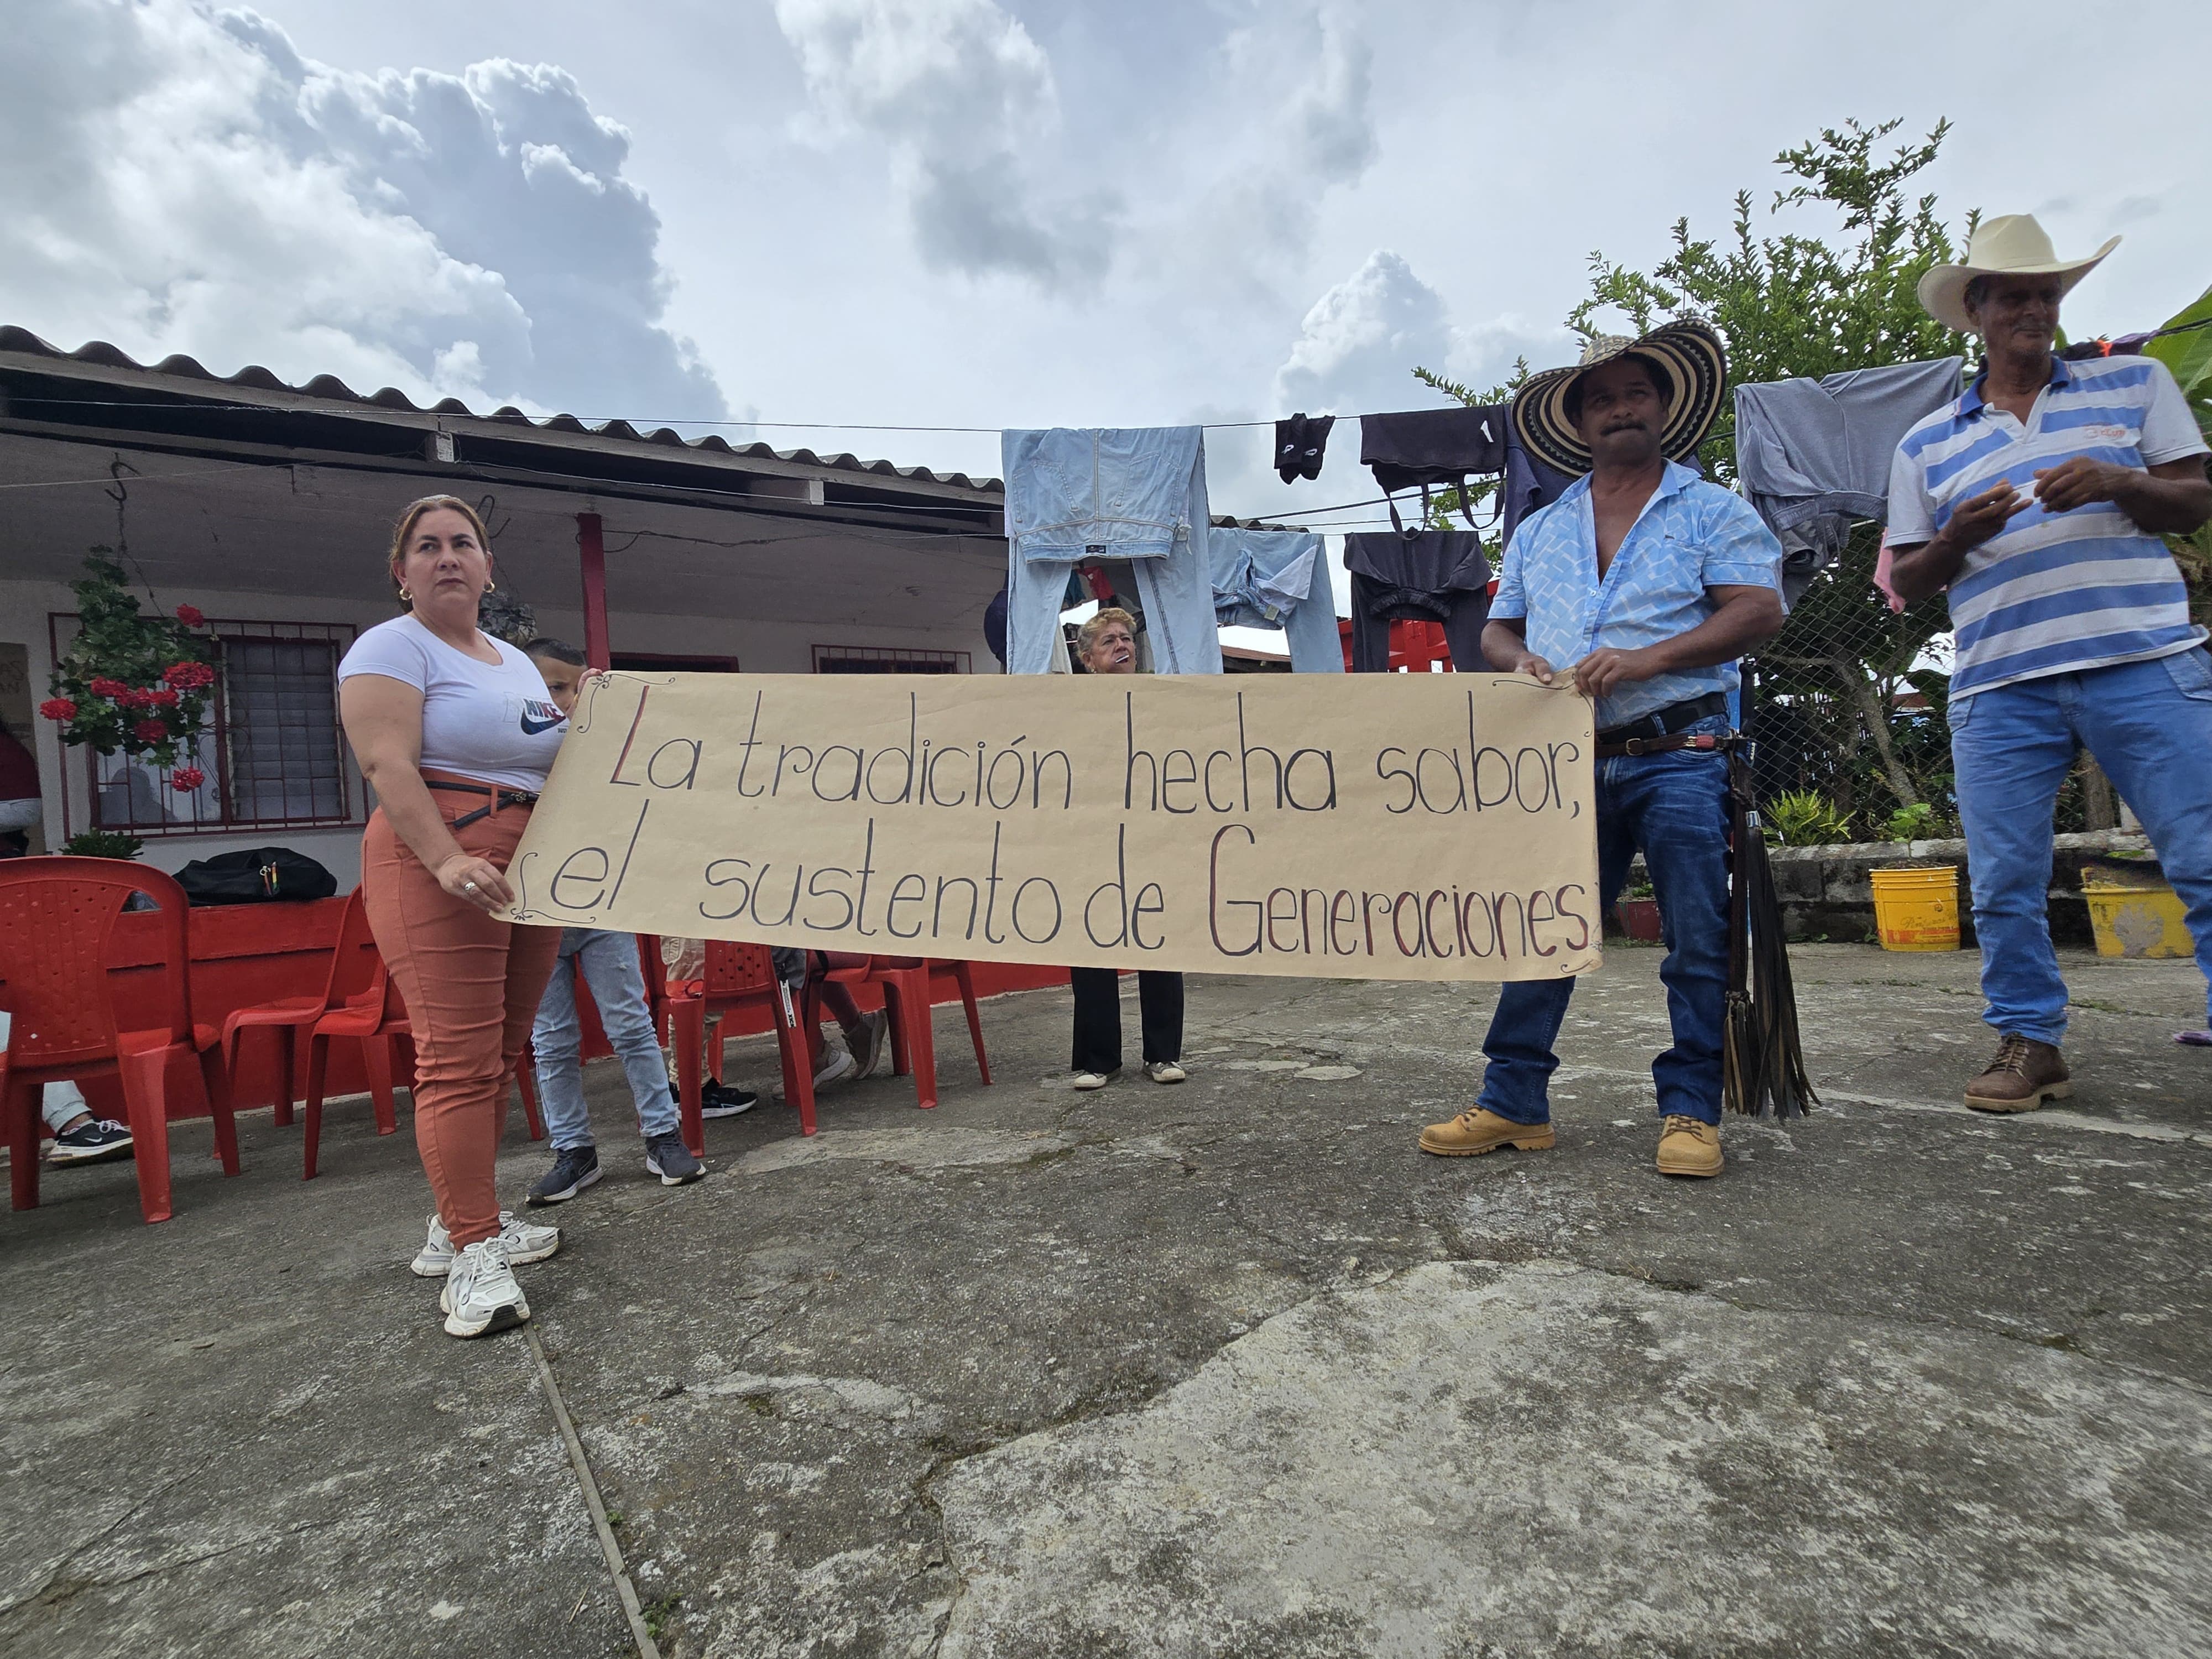 La tradición hecha sabor,
el sustento de Generaciones
NIKE